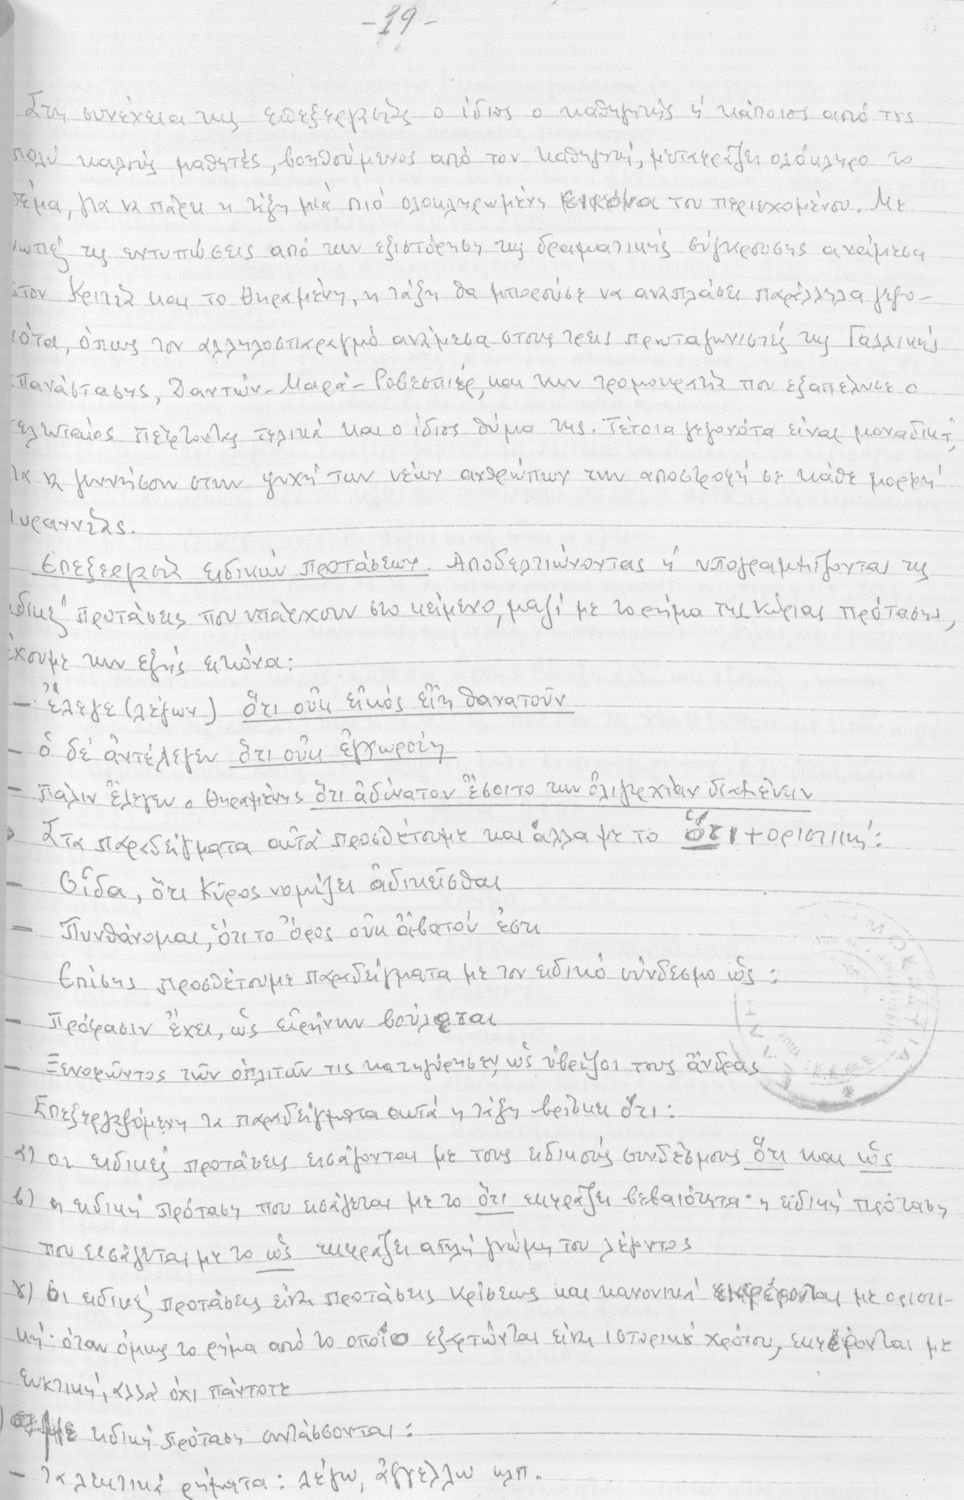 -19-
Στη συνέχεια της επεξεργασίας ο ίδιος ο καθηγητής ή κάποιος από τους
πολύ καλούς μαθητές, βοηθούμενος από τον καθηγητή, μεταφράζει ολόκληρο το
θέμα, για να πάρει η τάξη μιά πιό ολοκληρωμένη εικόνα του περιεχομένου. Με
νωπές τις εντυπώσεις από την εξιστόρηση της δραματικής σύγκρουσης ανάμεσα
στον Κριτία και το Θηραμένη, η τάξη θα μπορούσε να αναπλάσει παράλληλα γεγο-
νότα, όπως τον αλληλοσπαραγμό ανάμεσα στους τρεις πρωταγωνιστές της Γαλλικής
Επανάστασης, Δαντών-Μαρά-Ροβεσπιέρ, και την τρομοκρατία που εξαπέλυσε ο
τελευταίος πέφτοντας τελικά και ο ίδιος θύμα της. Τέτοια γεγονότα είναι μοναδικά,
για να γεννήσουν στην ψυχή των νέων ανθρώπων την αποστροφή σε κάθε μορφή
τυραννίας.
Επεξεργασία ειδικών προτάσεων. Αποδελτιώνοντας ή υπογραμμίζοντας τις
ειδικές προτάσεις που υπάρχουν στο κείμενο, μαζί με το ρήμα της κύριας πρότασης,
έχουμε την εξής εικόνα:
- ἔλεγε (λέγων) ὅτι οὐκ εἰκός εἴη θανατοῦν
- ὁ δέ ἀντέλεγεν ὅτι οὐκ ἐγχωροίη
- πάλιν ἔλεγεν ο Θηραμένης ὅτι ἀδύνατον ἔσοιτο την ὀλιγαρχίαν διαμένειν
Στα παραδείγματα αυτά προσθέτουμε και άλλα με το ὅτι + οριστική:
- Οἶδα, ὅτι Κῦρος νομίζει ἀδικεῖσθαι
- Πυνθάνομαι, ὅτι το ὄρος οὐκ ἄβατόν ἐστι
Επίσης προσθέτουμε παραδείγματα με τον ειδικό σύνδεσμο ὡς:
- Πρόφασιν ἔχει, ὡς εἰρήνην βούλεται
- Ξενοφῶντος τῶν ὁπλιτῶν τις κατηγόρησεν, ὡς ὑβρίζοι τους ἄνδρας
Επεξεργαζόμενη τα παραδείγματα αυτά η τάξη βρίσκει ότι:
α) οι ειδικές προτάσεις εισάγονται με τους ειδικούς συνδέσμους ὅτι και ὡς
β) η ειδική πρόταση που εισάγεται με το ὅτι εκφράζει βεβαιότητα· η ειδική πρόταση
που εισάγεται με το ὡς εκφράζει απλή γνώμη του λέγοντος
γ) Οι ειδικές προτάσεις είναι προτάσεις κρίσεως και κανονικά εκφέρονται με οριστι-
κή· όταν όμως το ρήμα από το οποίο εξαρτώνται είναι ιστορικού χρόνου, εκφέρονται με
ευκτική, αλλά όχι πάντοτε
με ειδική πρόταση συντάσσονται:
- τα λεκτικά ρήματα: λέγω, ἀγγέλλω κλπ.